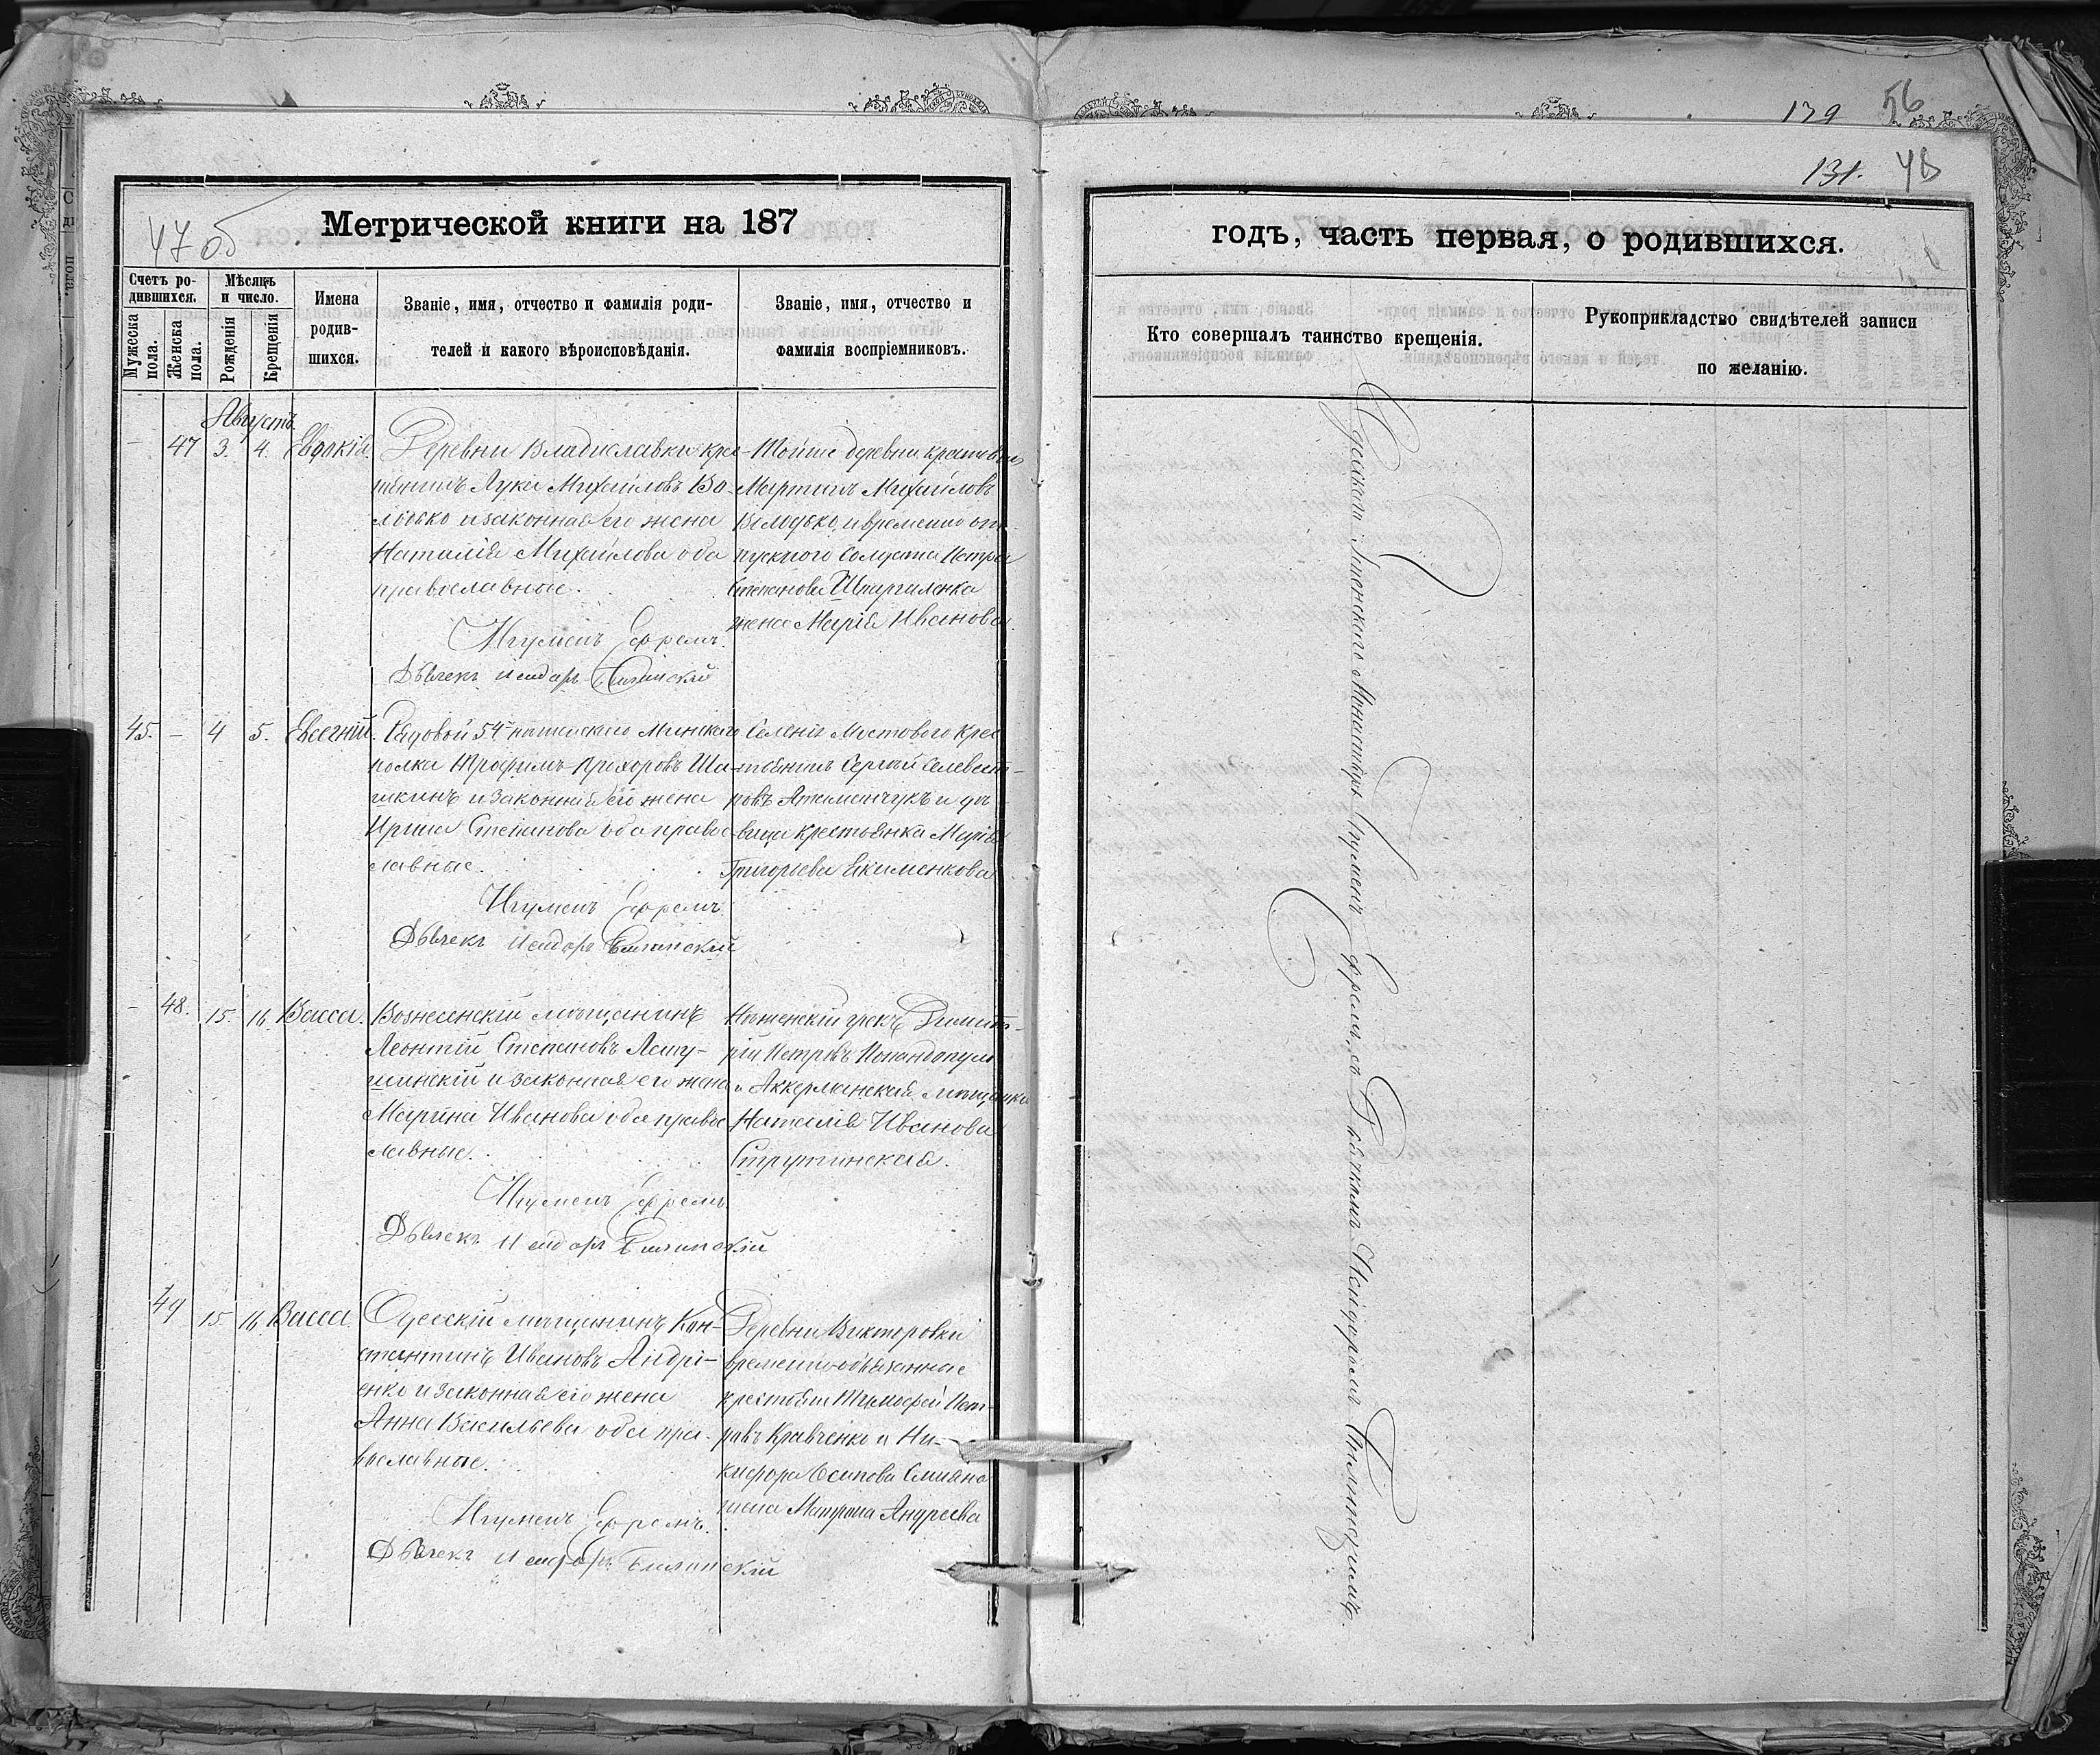 139 56
131. 48
47 об
Метрической книги на 187
Счетъ ро-
дившихся.
Мужеска
пола.
Женска
пола.
Мѣсяцъ
и число.
Рожденія
Крещенія
Имена
родив-
шихся.
Званіе, имя, отчество и фамилія роди-
телей и какого вѣроисповѣданія.
Званіе, имя, отчество и
фамилія воспріемниковъ.
Августъ
— 47 3. 4. Евдокія.
Деревни Владиславки кре-
тянинъ Лука Михайловъ
и законная его жена
Наталія Михайлова оба
православные.
Игуменъ Ефремъ.
Дьячекъ Исидоръ Билинскій
Той же деревни крестьянинъ
Мартинъ Михайловъ
и временно от-
пускного Солдата Петра
Степанова
жена Марія Иванова.
45. — 4 5. Евсегній.
Рядовой 54го пѣхотнаго Минскаго
полка Трофимъ Прохоровъ Ша-
шкинъ и законная его жена
Ирина Степанова оба правос-
лавные.
Игуменъ Ефремъ
Дьячекъ Исидоръ Билинскій
Селенія Мостового Крес
тьянинъ Сергій Селевест-
ровъ и дѣ
вица крестьянка Марія
Григорьева Якименкова
— 48. 15. 16. Васса.
Вознесенскій мѣщанинъ
Леонтій Степановъ Ласту-
шинскій и законная его жена
Марина Иванова оба правос
лавные.
Игуменъ Ефремъ.
Дьячекъ Исидоръ Билинскій
Нѣженскій грекъ Димит-
рій Петровъ Попандопуло
и Аккерманская мѣщанка
Наталія Иванова
Струтинская.
49 15 16 Васса
Одесскій мѣщанинъ Кон-
стантинъ Ивановъ Андрі-
енко и законная его жена
Анна Васильева оба пра-
вославные.
Игуменъ Ефремъ.
Дьячекъ Исидоръ Билинскій
Деревни Викторовки
временно-обязанные
крестьяне Тимофей Пет-
ровъ Кравченко и Ни-
кифора Осипова
жена Матрона Андреева
годъ, часть первая, о родившихся.
Кто совершалъ таинство крещенія.
Рукоприкладство свидѣтелей записи
по желанію.
Одесскаго Успенскаго Монастыря Игуменъ Ефремъ, съ Дьячкомъ Исидоромъ Билинскимъ.